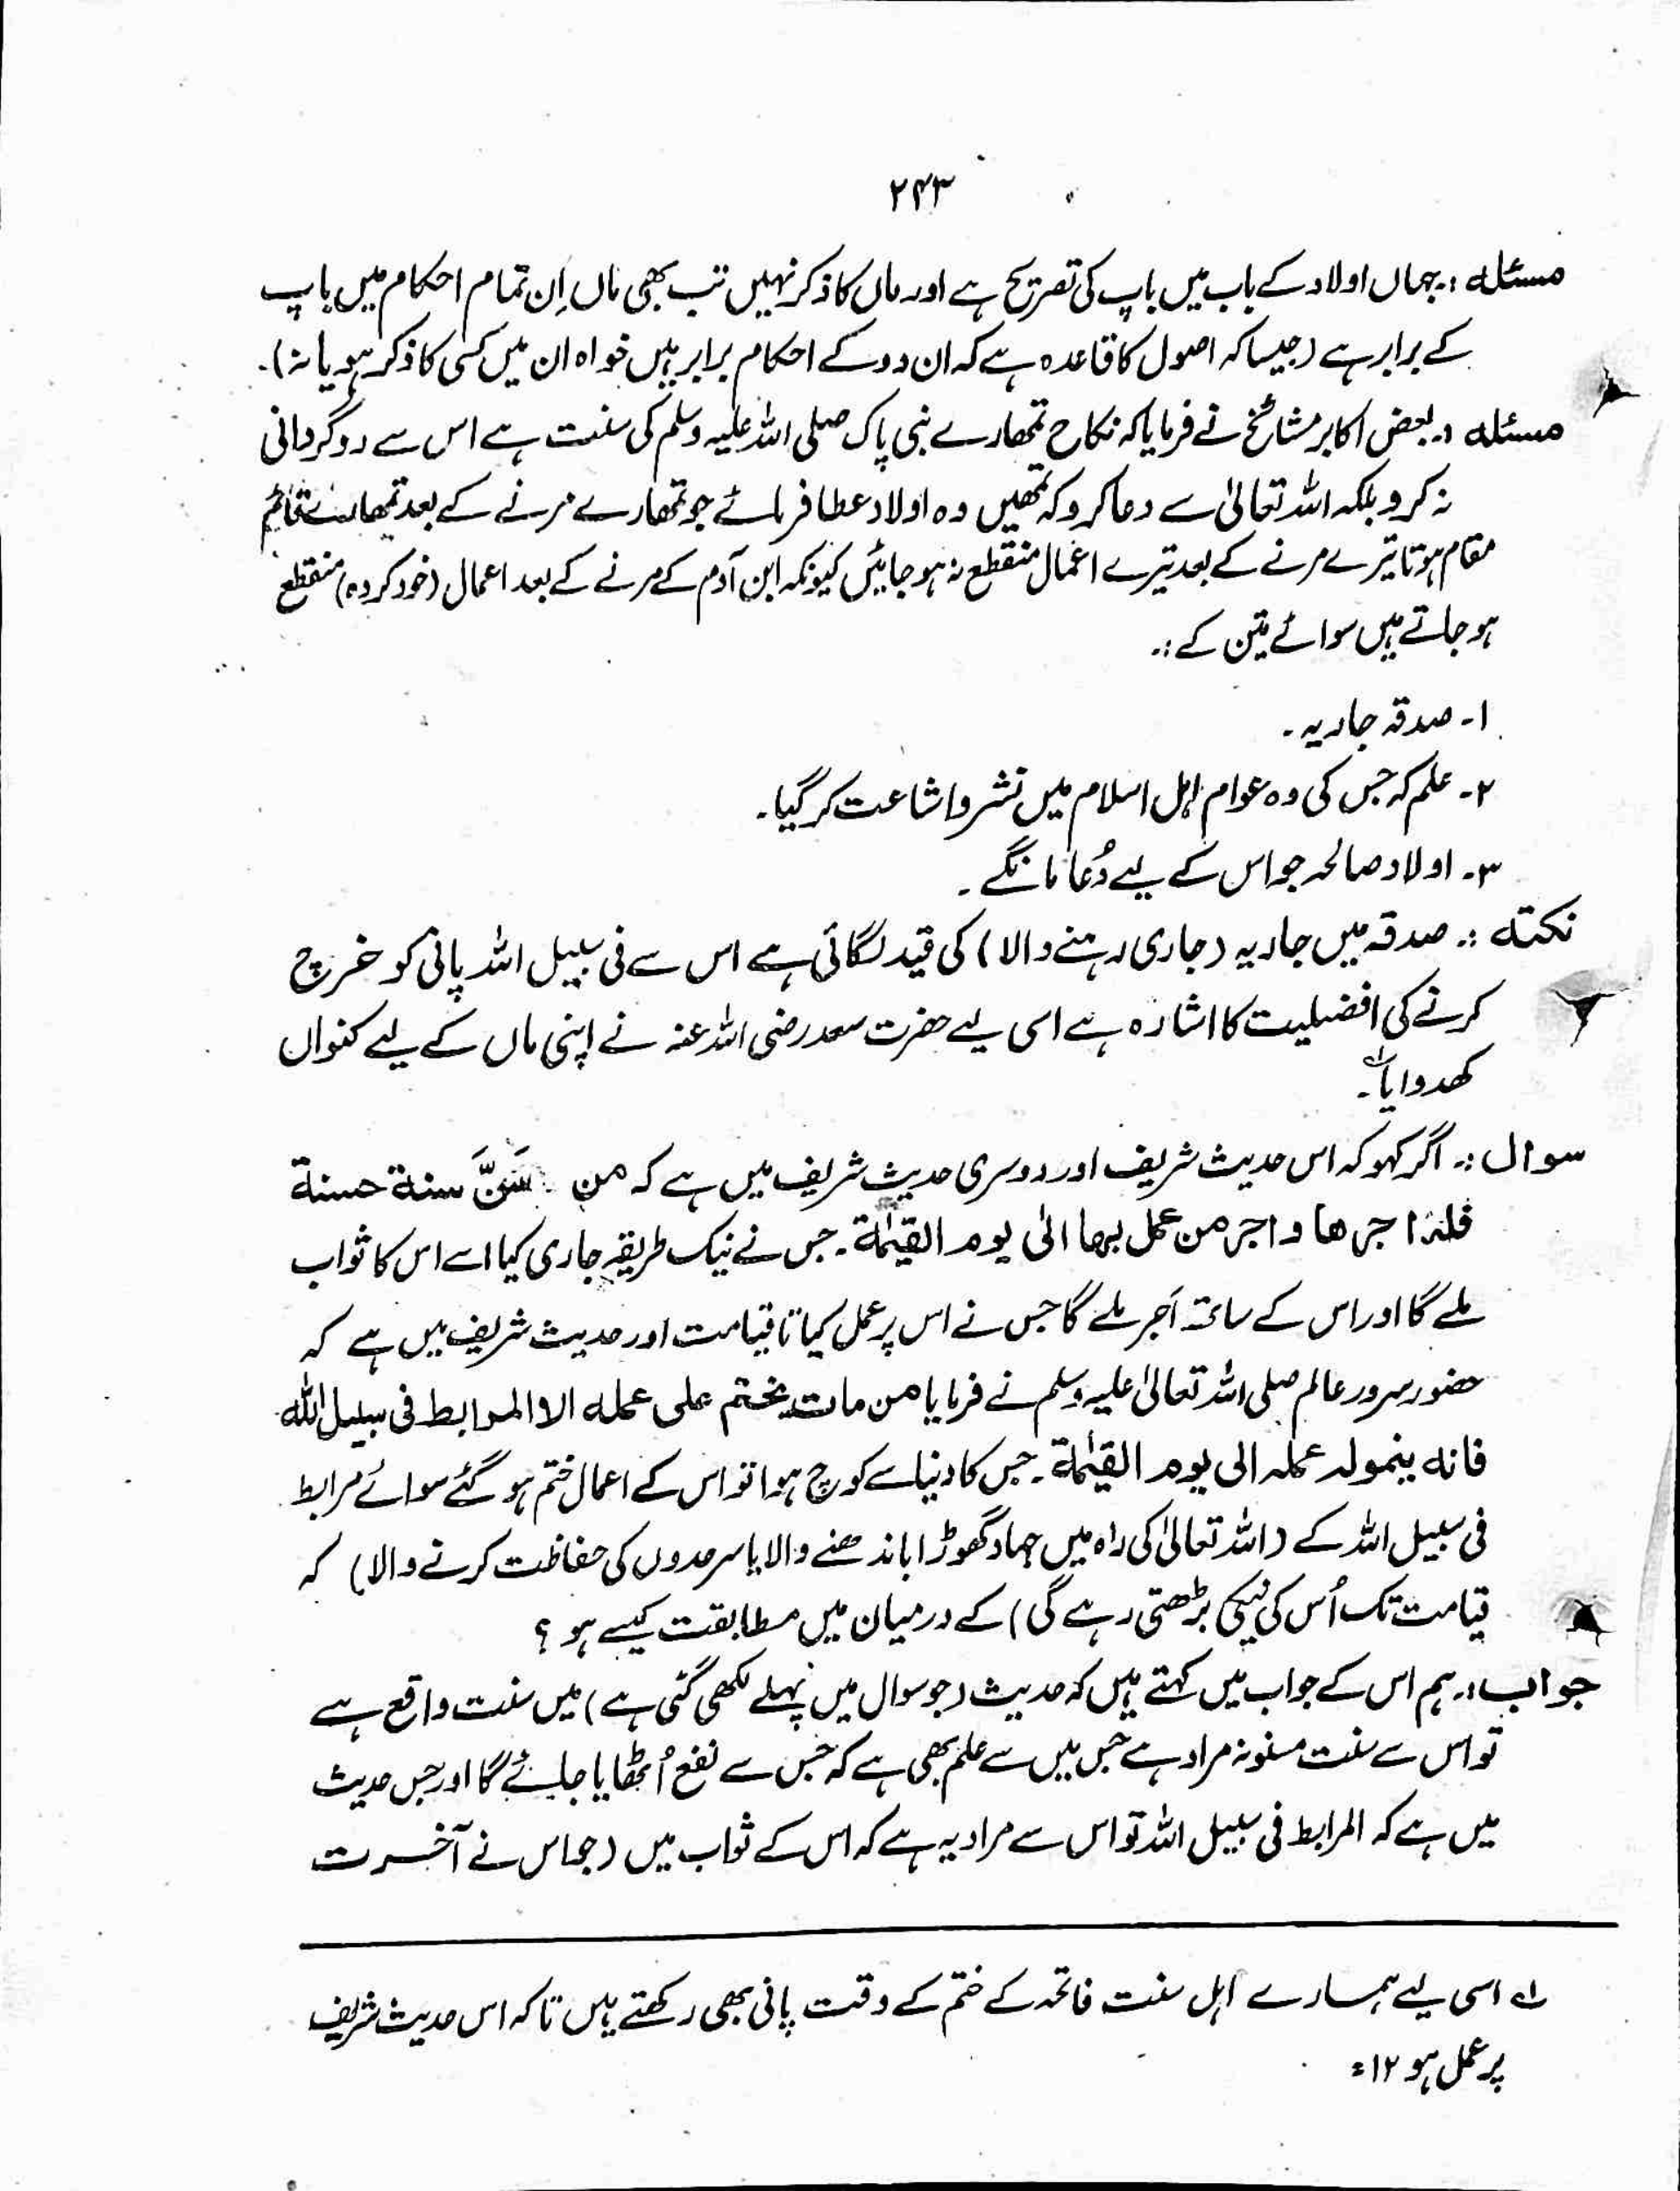 ۲۴۳
مسئلہ :۔ جہاں اولاد کے باب میں باپ کی تصریح ہے اور ماں کا ذکر نہیں تب بھی ماں اِن تمام احکام میں باپ
کے برابر ہے (جیسا کہ اصول کا قاعدہ ہے کہ ان دو کے احکام برابر ہیں خواہ ان میں کسی کا ذکر ہو یا نہ)۔
مسئلہ :۔ بعض اکابر مشائخ نے فرمایا کہ نکاح تمھارے نبی پاک صلی اللہ علیہ وسلم کی سنت ہے اس سے روگردانی
نہ کرو بلکہ اللہ تعالیٰ سے دعا کرو کہ تمھیں وہ اولاد عطا فرمائے جو تمھارے مرنے کے بعد تمھارے قائم
مقام ہو تا تیرے مرنے کے بعد تیرے اعمال منقطع نہ ہو جائیں کیونکہ ابن آدم کے مرنے کے بعد اعمال (خود کردہ) منقطع
ہو جاتے ہیں سوائے تین کے :۔
۱۔ صدقہ جاریہ ۔
۲۔ علم کہ جس کی وہ عوام اہل اسلام میں نشر و اشاعت کر گیا۔
۳۔ اولاد صالحہ جو اس کے لیے دُعا مانگے ۔
نکتہ :۔ صدقہ میں جاریہ (جاری رہنے والا) کی قید لگائی ہے اس سے فی سبیل اللہ پانی کو خرچ
کرنے کی افضیلیت کا اشارہ ہے اسی لیے حضرت سعد رضی اللہ عنہ نے اپنی ماں کے لیے کنواں
کھدوایا لہ۔
سوال :۔ اگر کہو کہ اس حدیث شریف اور دوسری حدیث شریف میں ہے کہ من سَنَّ سنة حسنة
فلہٗ اجرھا و اجر من عمل بھا الیٰ یوم القیٰمة ۔ جس نے نیک طریقہ جاری کیا اسے اس کا ثواب
ملے گا اور اس کے ساتھ اَجر ملے گا جس نے اس پر عمل کیا تا قیامت اور حدیث شریف میں ہے کہ
حضور سرور عالم صلی اللہ تعالیٰ علیہ وسلم نے فرمایا من مات یختم علی عملہ الا المرابط فی سبیل اللہ
فانہ ینمولہ عملہ الی یوم القیٰمة ۔ جس کا دنیا سے کوچ ہوا تو اس کے اعمال ختم ہو گئے سوائے مرابط
فی سبیل اللہ کے (اللہ تعالیٰ کی راہ میں جہاد گھوڑا باندھنے والا یا سرحدوں کی حفاظت کرنے والا) کہ
قیامت تک اُس کی نیکی بڑھتی رہے گی) کے درمیان میں مطابقت کیسے ہو ؟
جواب :۔ ہم اس کے جواب میں کہتے ہیں کہ حدیث (جو سوال میں پہلے لکھی گئی ہے) میں سنت واقع ہے
تو اس سے سنت مسنونہ مراد ہے جس میں سے علم بھی ہے کہ جس سے نفع اُٹھایا جائے گا اور جس حدیث
میں ہے کہ المرابط فی سبیل اللہ تو اس سے مراد یہ ہے کہ اس کے ثواب میں (جو اس نے آخرت
لہ اسی لیے ہمارے اہل سنت فاتحہ کے ختم کے وقت پانی بھی رکھتے ہیں تاکہ اس حدیث شریف
پر عمل ہو ۱۲؎